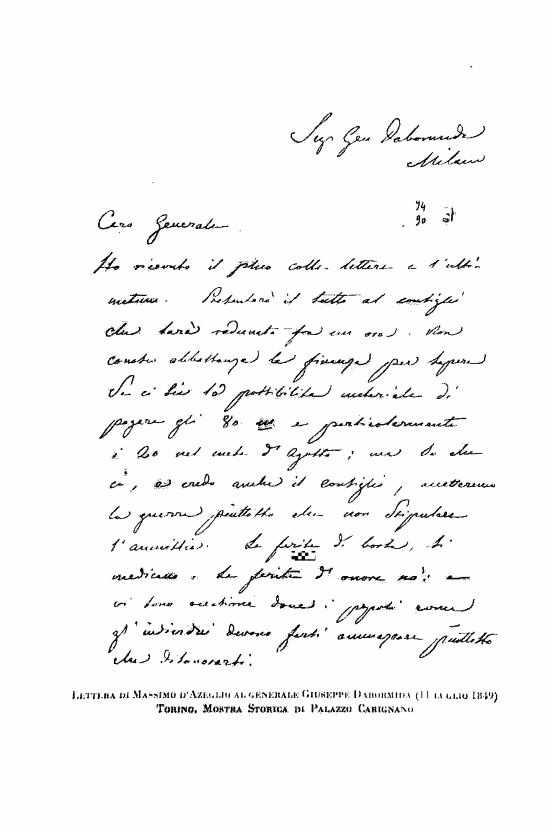 Sigr Gen Dabormida
Milano
74
90
Caro Generale
Ho ricevuto il plico colle lettere e l'ulti-
matum. Presenterò il tutto al consiglio
che sarà radunato fra un ora. Non
conosco abbastanza la finanza per sapere
se ci sia la possibilità materiale di
pagare gli 80 m e particolarmente
i 20 nel mese d'Agosto; ma so che
io, e credo anche il Consiglio, accetteremo
la guerra piuttosto che non stipulare
l'amnistia. Le ferite di borsa, si
medicano: Le ferite d'onore no! e
vi sono occasioni dove i popoli come
gl'individui devono farsi ammazzare piuttosto
che disonorarsi.
LETTERA DI MASSIMO D'AZEGLIO AL GENERALE GIUSEPPE DABORMIDA (11 LUGLIO 1849)
TORINO, MOSTRA STORICA DI PALAZZO CARIGNANO